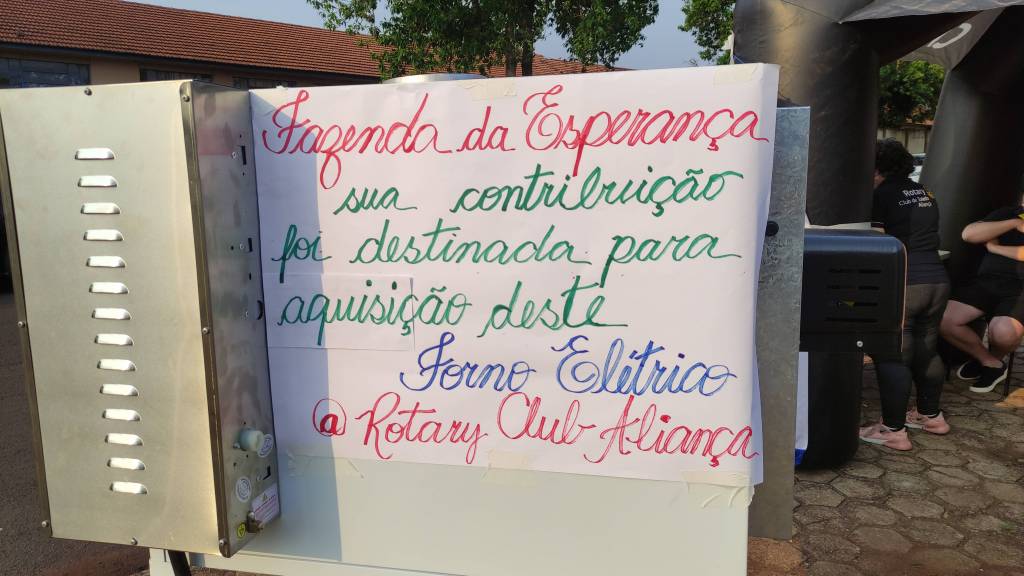 Fazenda da Esperança
sua contribuição
foi destinada para
aquisição deste
Forno Elétrico
@ Rotary Club Aliança
Rotary
Club de Toledo
Aliança